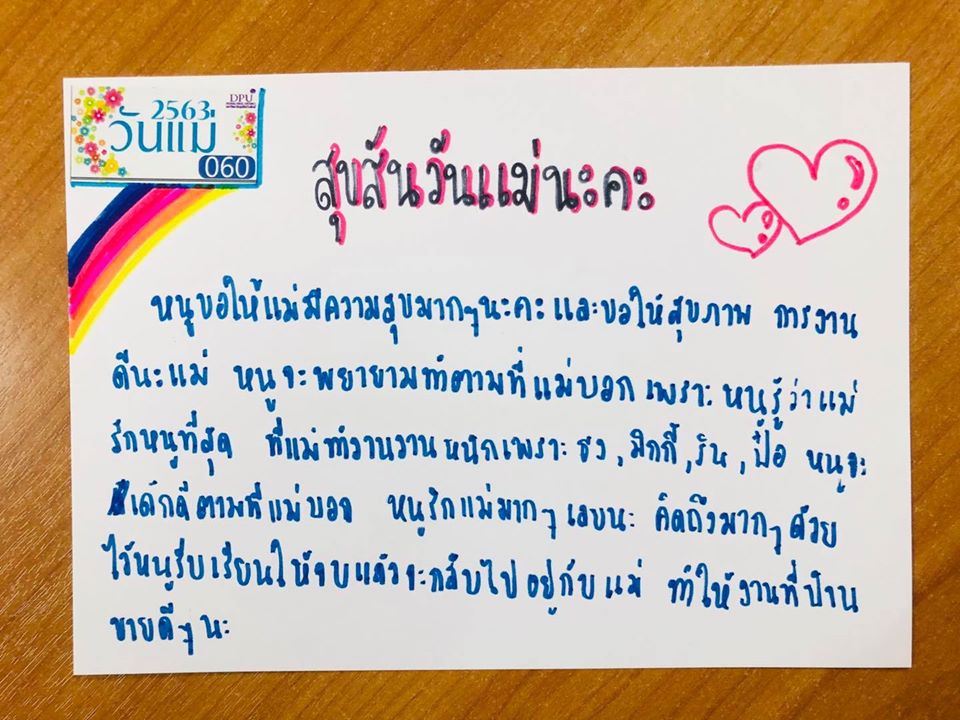 DPU
2563
วันแม่
060
สุขสันวันแม่นะคะ
หนูขอให้แม่มีความสุขมากๆนะคะและขอให้สุขภาพ การงาน
ดีนะแม่ หนูจะพยายามทำตามที่แม่บอกเพราะหนูรู้ว่าแม่
รักหนูที่สุด ที่แม่ทำงานงานหนักเพราะ ธง, มิกกี้, ริน, ปื๋อ หนูจะ
เด้กดีตามที่แม่บอก หนูรักแม่มากๆเลยนะ คิดถึงมากๆด้วย
ไว้หนูรีบเรียนให้จบแล้วจะกลับไปอยู่กับแม่ ทำให้งานที่บ้าน
ขายดีๆนะ